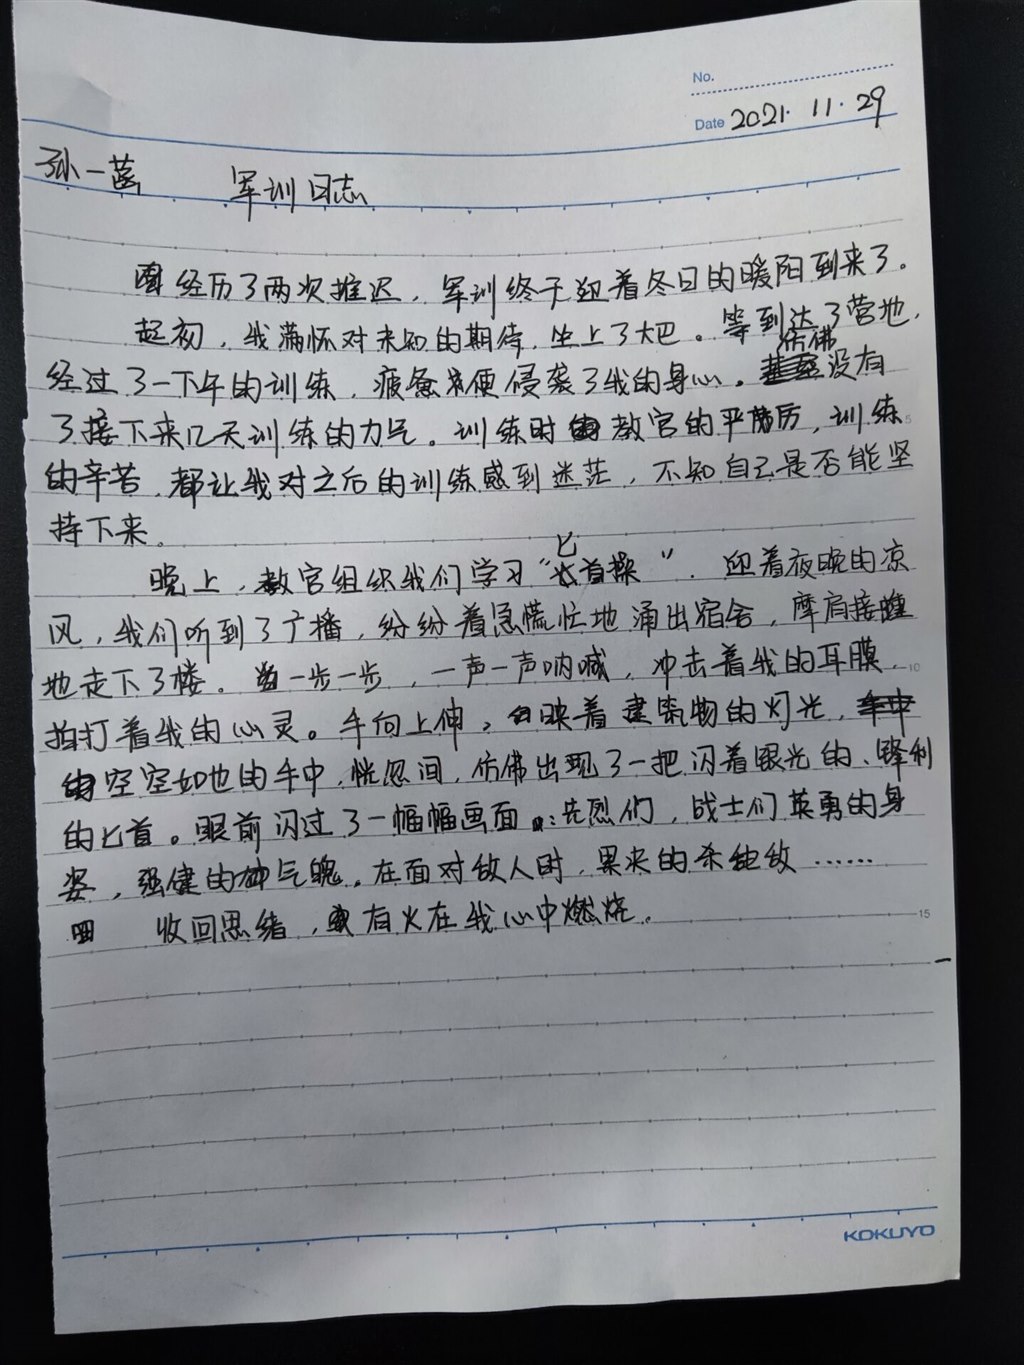 No.
Date 2021. 11. 29
孙一菡 军训日志
经历了两次推迟，军训终于迎着冬日的暖阳到来了。
起初，我满怀对未知的期待，坐上了大巴。等到达了营地，
经过了一下午的训练，疲惫便侵袭了我的身心。仿佛没有
了接下来几天训练的力气。训练时教官的严厉，训练
的辛苦，都让我对之后的训练感到迷茫，不知自己是否能坚
持下来。
晚上，教官组织我们学习“匕首操”。迎着夜晚的凉
风，我们听到了广播，纷纷着急慌忙地涌出宿舍，摩肩接踵
地走下了楼。一步一步，一声一声呐喊，冲击着我的耳膜，
拍打着我的心灵。手向上伸，映着建筑物的灯光，
空空如也的手中，恍忽间，仿佛出现了一把闪着银光的、锋利
的匕首。眼前闪过了一幅幅画面：先烈们，战士们英勇的身
姿，强健的气魄。在面对敌人时，果决的杀绝敌……
收回思绪，有火在我心中燃烧。
5
10
15
KOKUYO